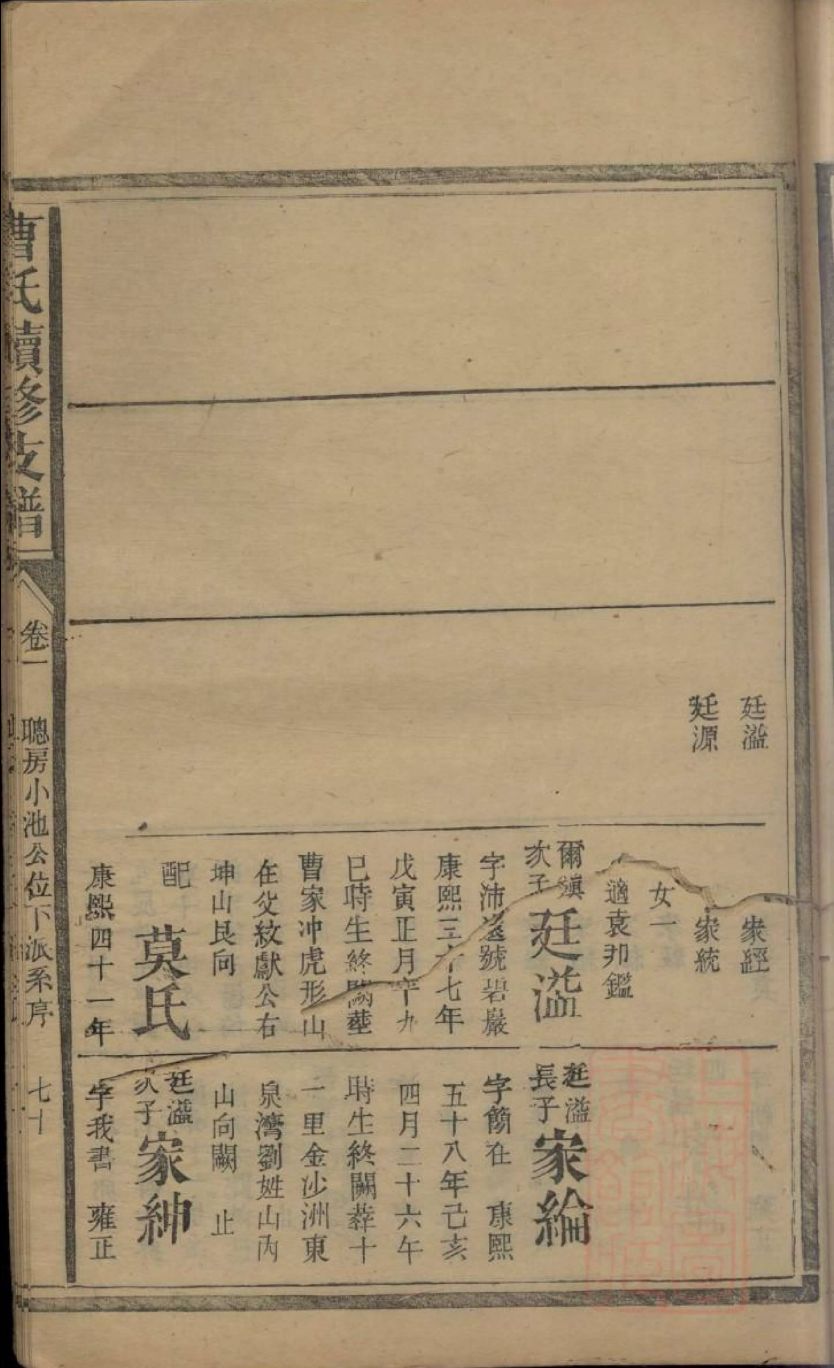 廷溢
廷源
家經
家統
女一
適袁邦鑑
爾鎮
次子
廷溢
字沛遠號碧巖
康熙三十七年
戊寅正月十九
巳時生終闕塟
曹家冲虎形山
在父紋獻公右
坤山艮向
配莫氏
康熙四十一年
廷溢
長子
家綸
字簡在 康熙
五十八年己亥
四月二十六午
時生終闕葬十
一里金沙洲東
泉灣劉姓山內
山向闕 止
廷溢
次子
家紳
字我書 雍正
曹氏續修支譜
卷一 聰房小池公位下派系序 七十